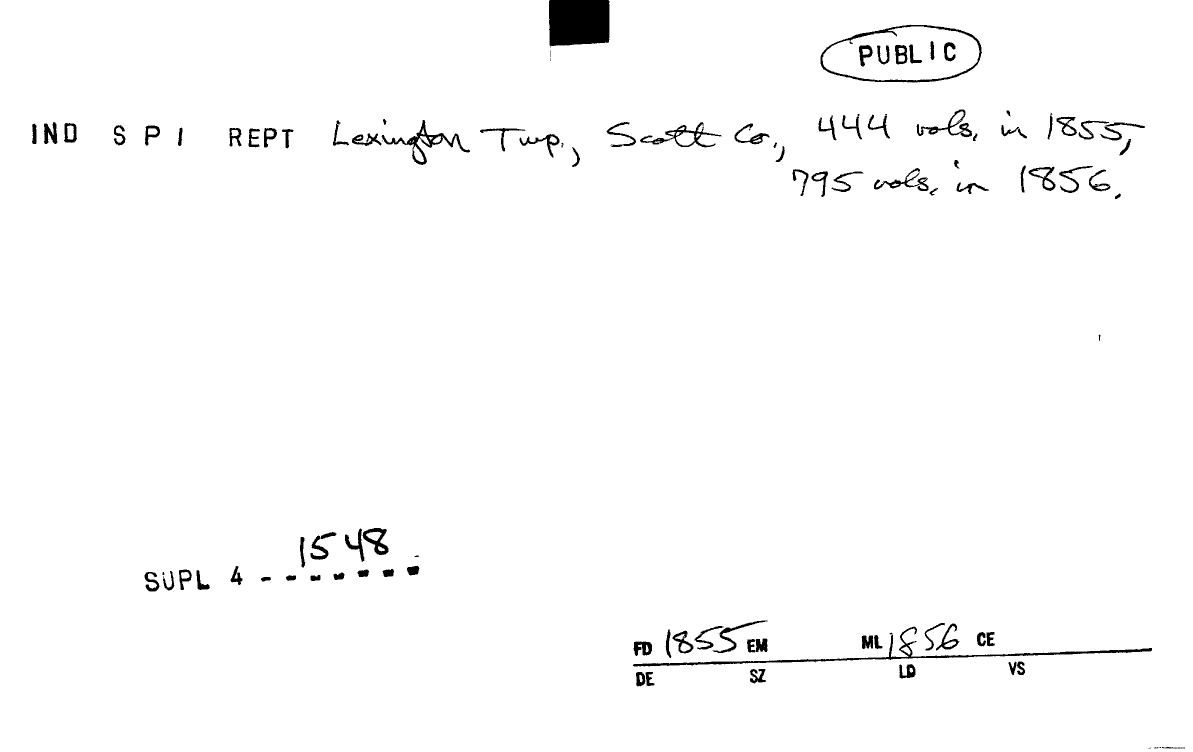 PUBLIC
IND S P I REPT Lexington Twp., Scott Co., 444 vols. in 1855,
795 vols. in 1856.
1548
SUPL 4 - - - - - - -
FD 1855 EM ML 1856 CE
DE SZ LD VS